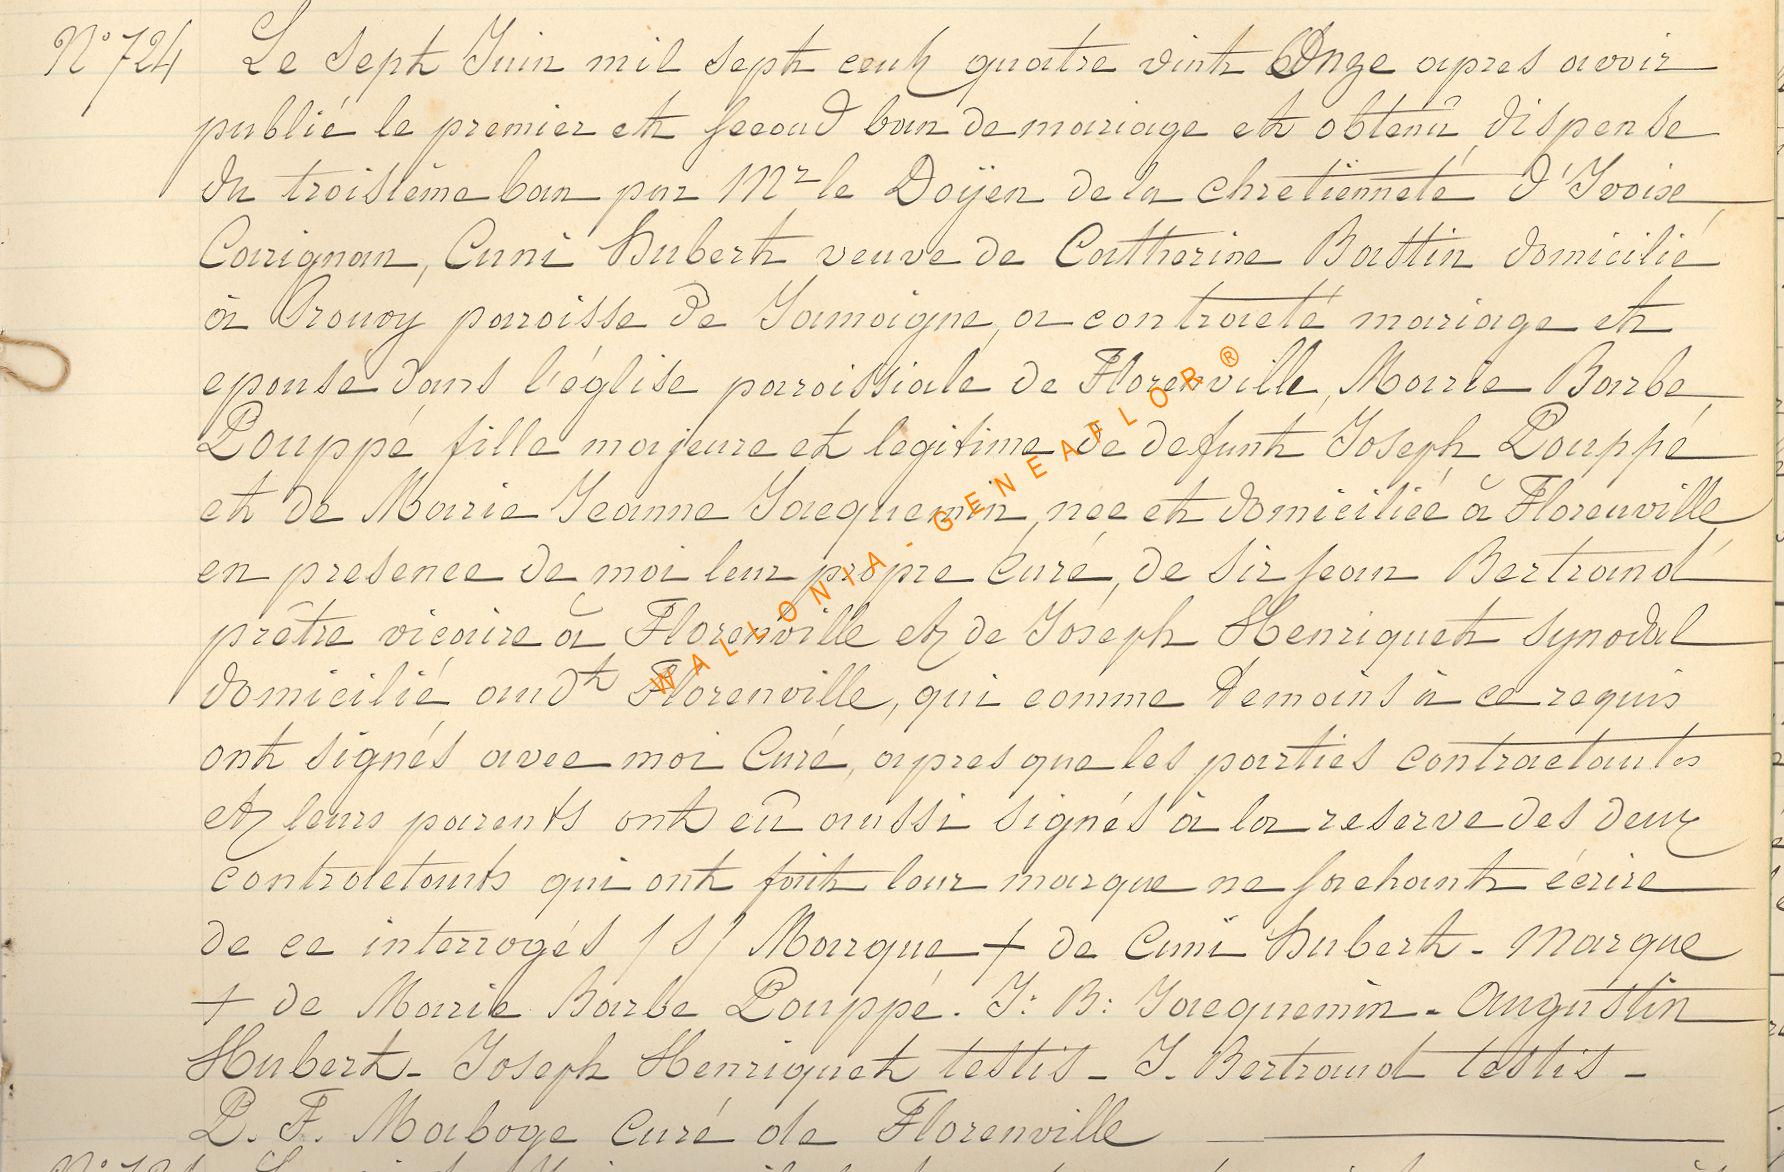 N° 724 Le sept Juin mil sept cent quatre vint Onze apres avoir
publié le premier et second ban de mariage et obtenû dispense
du troisiême ban par Mr le Doÿen de la chretienneté d'Ivoix
Carignan, Cuni Hubert veuve de Catherine Bastin domicilié
à Prouvy paroisse de Jamoigne, a contracté mariage et
epouse dans l'église paroissiale de Florenville, Marie Barbe
Pouppé fille majeure et legitime de defunt Joseph Pouppé
et de Marie Jeanne Jacquemin née et domiciliée à Florenville
en presence de moi leur propre Curé, de sir jean Bertrand
prêtre vicaire à Florenville et de Joseph Henriquet synodal
domicilié audt Florenville, qui comme temoins à ce requis
ont signés avec moi Curé, apres que les parties contractantes
et leurs parents ont eû aussi signés à la reserve des deux
contractants qui ont fait leur marque ne sachant écrire
de ce interrogés /S/ Marque + de Cuni Hubert - Marque
+ de Marie Barbe Pouppé. J: B: Jacquemin - Augustin
Hubert - Joseph Henriquet testis - J. Bertrand testis -
P. F. Maboge Curé de Florenville
WALLONIA - GENEAFLOR®